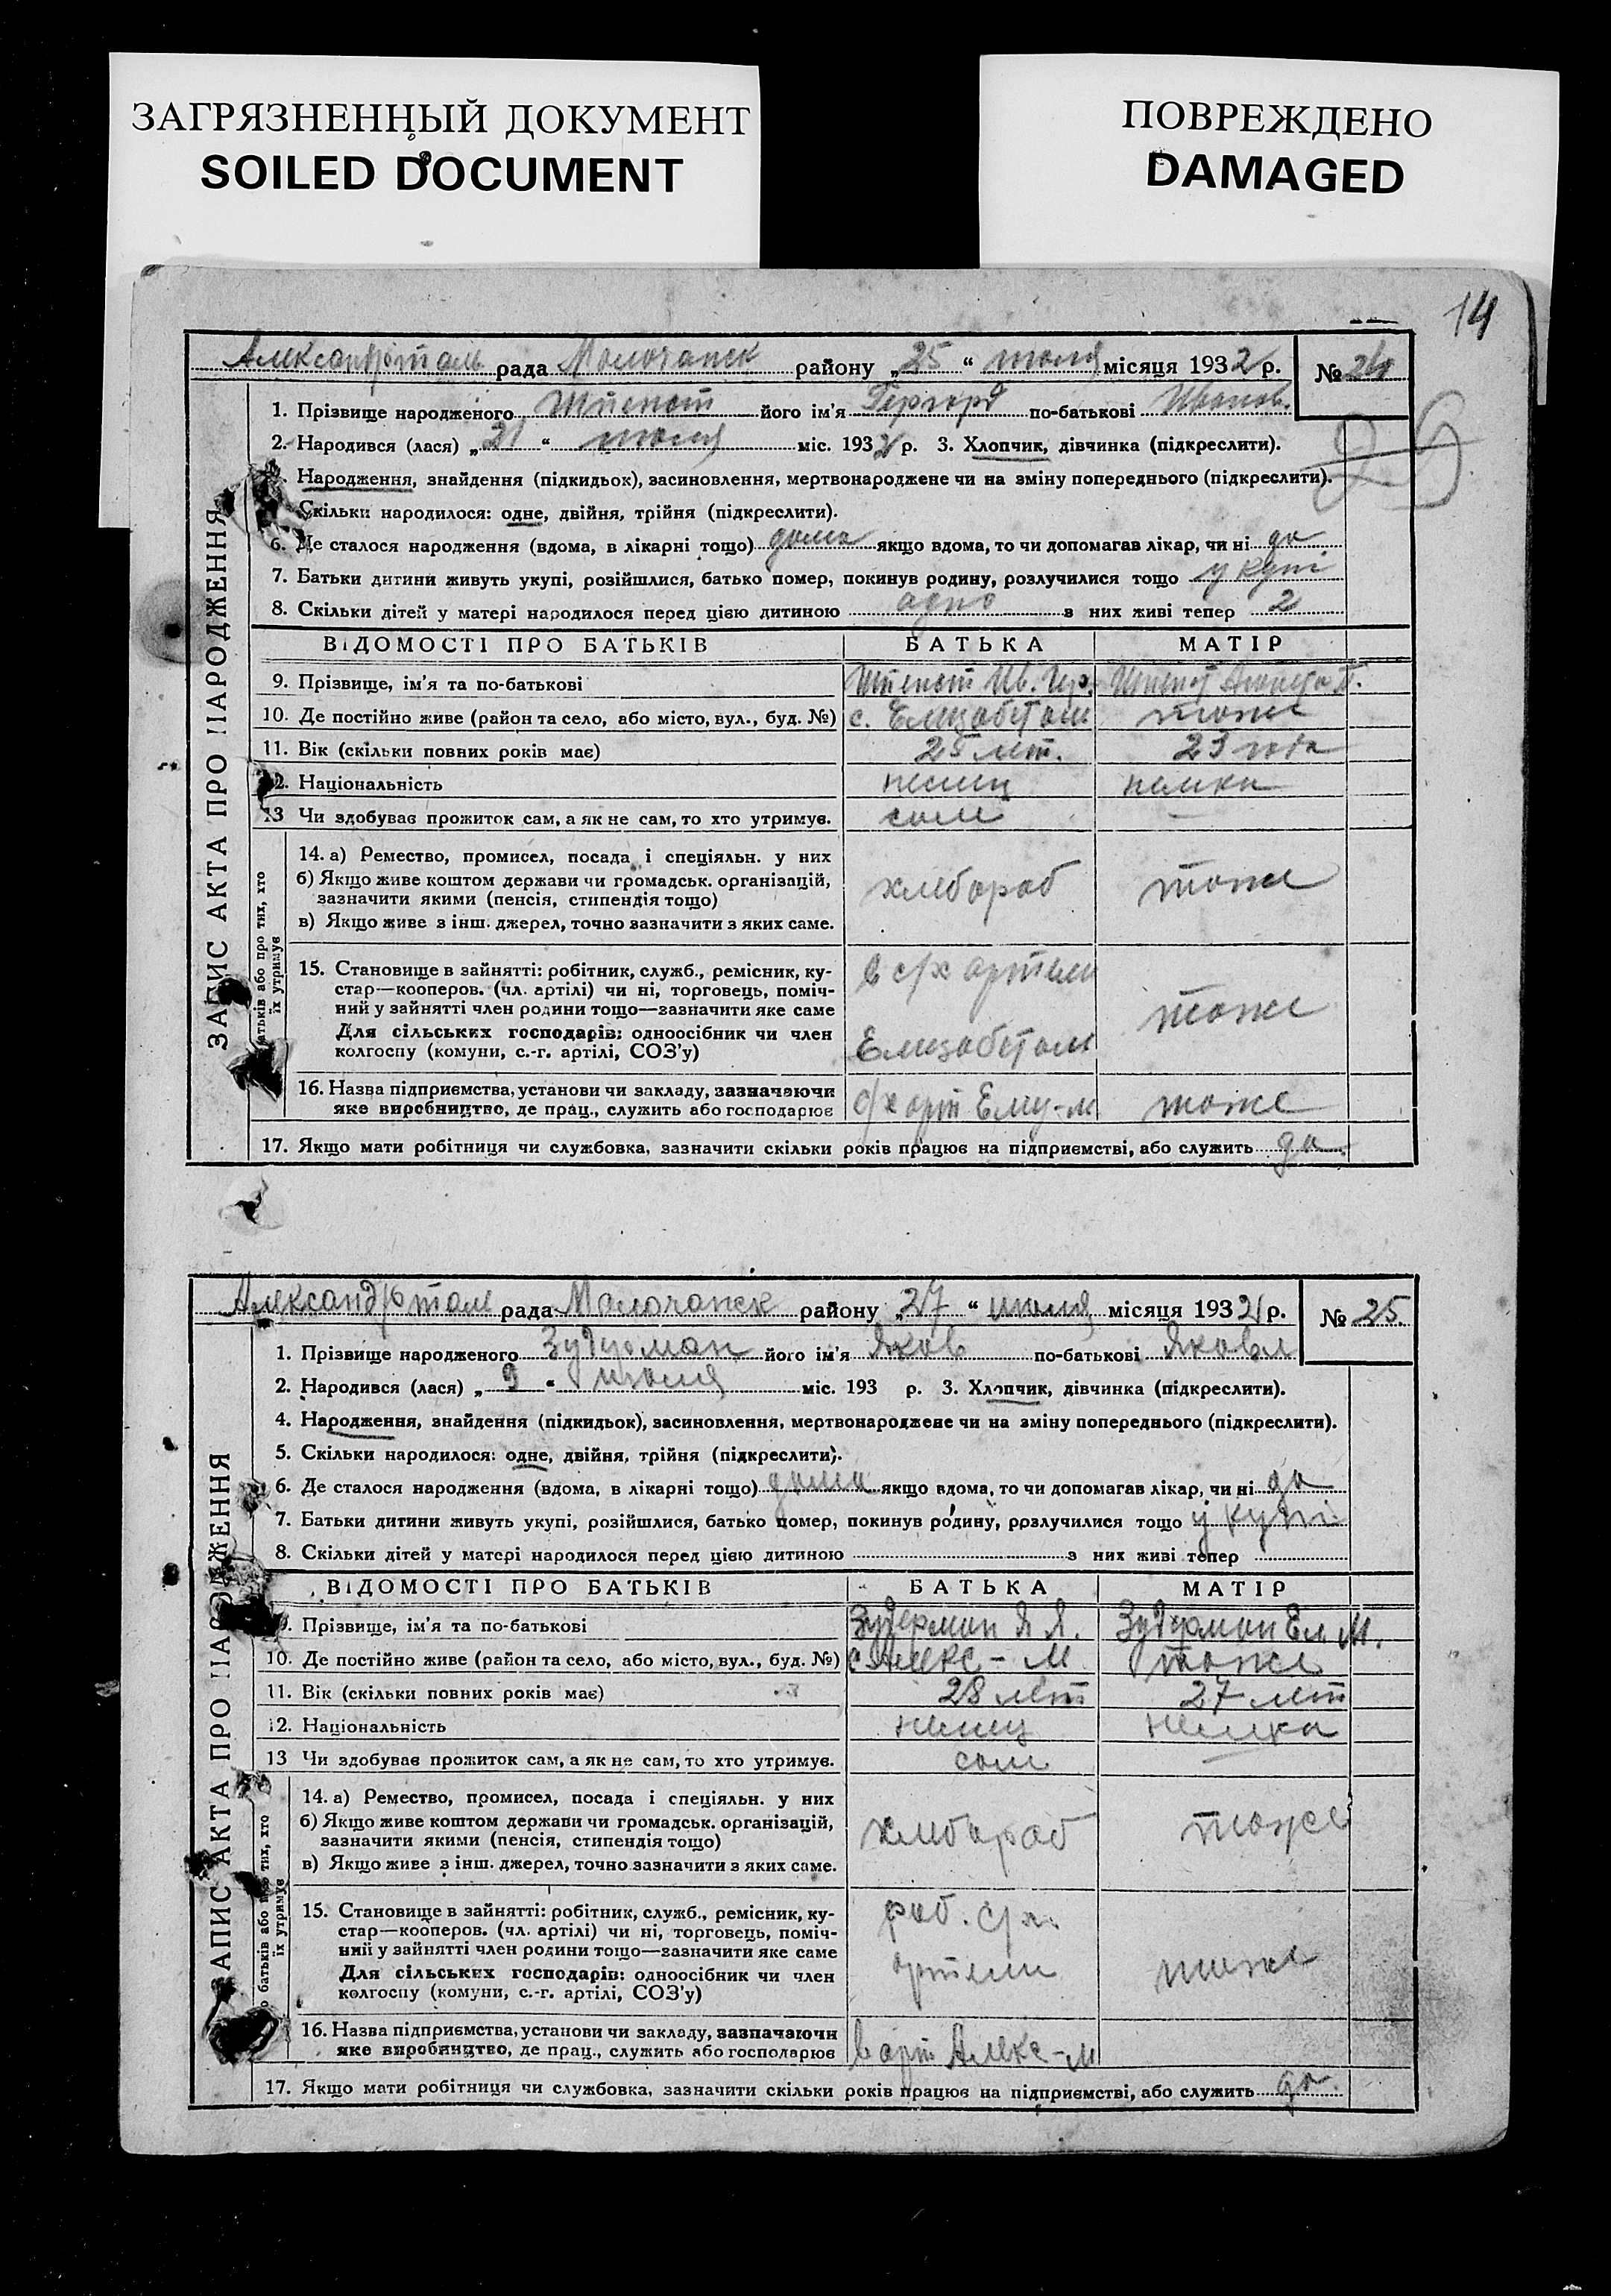 ЗАГРЯЗНЕННЫЙ ДОКУМЕНТ
SOILED DOCUMENT
ПОВРЕЖДЕНО
DAMAGED
14
рада Молочанск району „25“ июля місяця 1932 р. № 24
1. Прізвище народженого його ім'я Гергард по-батькові Иванов.
2. Народився (лася) „21“ июля міс. 1932 р. 3. Хлопчик, дівчинка (підкреслити).
Народження, знайдення (підкидьок), засиновлення, мертвонароджене чи на зміну попереднього (підкреслити).
Скільки народилося: одне, двійня, трійня (підкреслити).
6. Де сталося народження (вдома, в лікарні тощо) дома якщо вдома, то чи допомагав лікар, чи ні да
7. Батьки дитини живуть укупі, розійшлися, батько помер, покинув родину, розлучилися тощо укупі
8. Скільки дітей у матері народилося перед цією дитиною одно з них живі тепер 2
ВІДОМОСТІ ПРО БАТЬКІВ БАТЬКА МАТІР
9. Прізвище, ім'я та по-батькові
10. Де постійно живе (район та село, або місто, вул., буд. №) с. Елизабетал тоже
11. Вік (скільки повних років має) 25 лет. 23
12. Національність немец немка
13 Чи здобував прожиток сам, а як не сам, то хто утримув. сам —
14. а) Ремество, промисел, посада і спеціяльн. у них
б) Якщо живе коштом держави чи громадськ. організацій,
зазначити якими (пенсія, стипендія тощо) хлебороб тоже
в) Якщо живе з інш. джерел, точно зазначити з яких саме.
15. Становище в зайнятті: робітник, служб., ремісник, ку-
стар—кооперов. (чл. артілі) чи ні, торговець, поміч-
ний у зайнятті член родини тощо—зазначити яке саме
Для сільських господарів: одноосібник чи член
колгоспу (комуни, с.-г. артілі, СОЗ'у)
в с/х артели
Елизабетал
тоже
16. Назва підприємства, установи чи закладу, зазначаючи
яке виробництво, де прац., служить або господарює
с/х арт тоже
17. Якщо мати робітниця чи службовка, зазначити скільки років працює на підприємстві, або служить да
ЗАПИС АКТА ПРО НАРОДЖЕННЯ
батьків або про тих, хто
їх утримує
рада Молочанск району „27“ июля місяця 1932 р. № 25.
1. Прізвище народженого Зудерман його ім'я Яков по-батькові Яковл
2. Народився (лася) „9“ июля міс. 193 р. 3. Хлопчик, дівчинка (підкреслити).
4. Народження, знайдення (підкидьок), засиновлення, мертвонароджене чи на зміну попереднього (підкреслити).
5. Скільки народилося: одне, двійня, трійня (підкреслити).
6. Де сталося народження (вдома, в лікарні тощо) дома якщо вдома, то чи допомагав лікар, чи ні да
7. Батьки дитини живуть укупі, розійшлися, батько помер, покинув родину, розлучилися тощо укупі
8. Скільки дітей у матері народилося перед цією дитиною з них живі тепер
ВІДОМОСТІ ПРО БАТЬКІВ БАТЬКА МАТІР
9. Прізвище, ім'я та по-батькові Зудерман Я Я. Зудерман Ел. М.
10. Де постійно живе (район та село, або місто, вул., буд. №) с Алекс-л тоже
11. Вік (скільки повних років має) 28 лет 27 лет
12. Національність немец немка
13 Чи здобував прожиток сам, а як не сам, то хто утримув. сам —
14. а) Ремество, промисел, посада і спеціяльн. у них
б) Якщо живе коштом держави чи громадськ. організацій,
зазначити якими (пенсія, стипендія тощо) хлебороб тоже
в) Якщо живе з інш. джерел, точно зазначити з яких саме.
15. Становище в зайнятті: робітник, служб., ремісник, ку-
стар—кооперов. (чл. артілі) чи ні, торговець, поміч-
ний у зайнятті член родини тощо—зазначити яке саме
Для сільських господарів: одноосібник чи член
колгоспу (комуни, с.-г. артілі, СОЗ'у)
раб. с/х.
артели
тоже
16. Назва підприємства, установи чи закладу, зазначаючи
яке виробництво, де прац., служить або господарює
в арт Алекс-л
17. Якщо мати робітниця чи службовка, зазначити скільки років працює на підприємстві, або служить да.
ЗАПИС АКТА ПРО НАРОДЖЕННЯ
батьків або про тих, хто
їх утримує